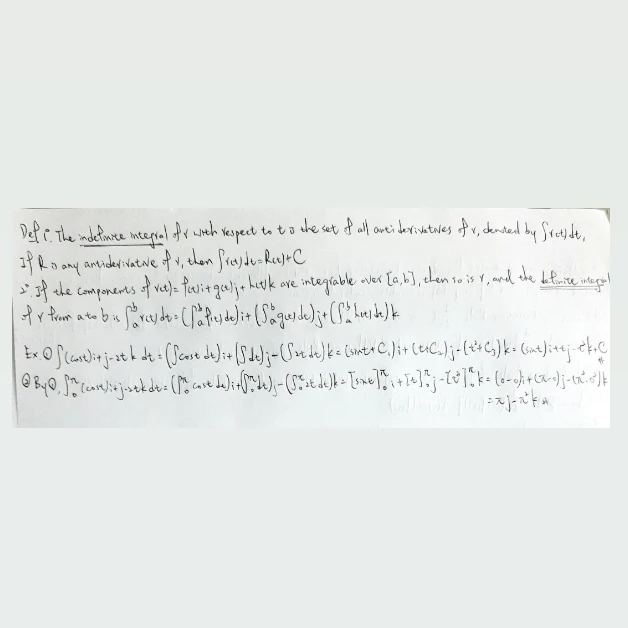 Def 1°. The indefinite integral of r with respect to t is the set of all antiderivatives of r, denoted by ∫r(t)dt,
If R is any antiderivative of r, then ∫r(t)dt=R(t)+C
2°. If the components of r(t)= f(t)i+g(t)j+h(t)k are integrable over [a,b], then so is r, and the definite integral
of r from a to b is ∫ₐᵇ r(t)dt=(∫ₐᵇ f(t)dt)i+(∫ₐᵇ g(t)dt)j+(∫ₐᵇ h(t)dt)k
Ex ① ∫(cost)i+j-2tk dt=(∫cost dt)i+(∫dt)j-(∫2t dt)k=(sint+C₁)i+(t+C₂)j-(t²+C₃)k=(sint)i+tj-t²k+C
② By①, ∫₀^π (cost)i+j-2tk dt=(∫₀^π cost dt)i+(∫₀^π dt)j-(∫₀^π 2t dt)k=[sint]₀^π i+[t]₀^π j-[t²]₀^π k=(0-0)i+(π-0)j-(π²-0²)k
=πj-π²k